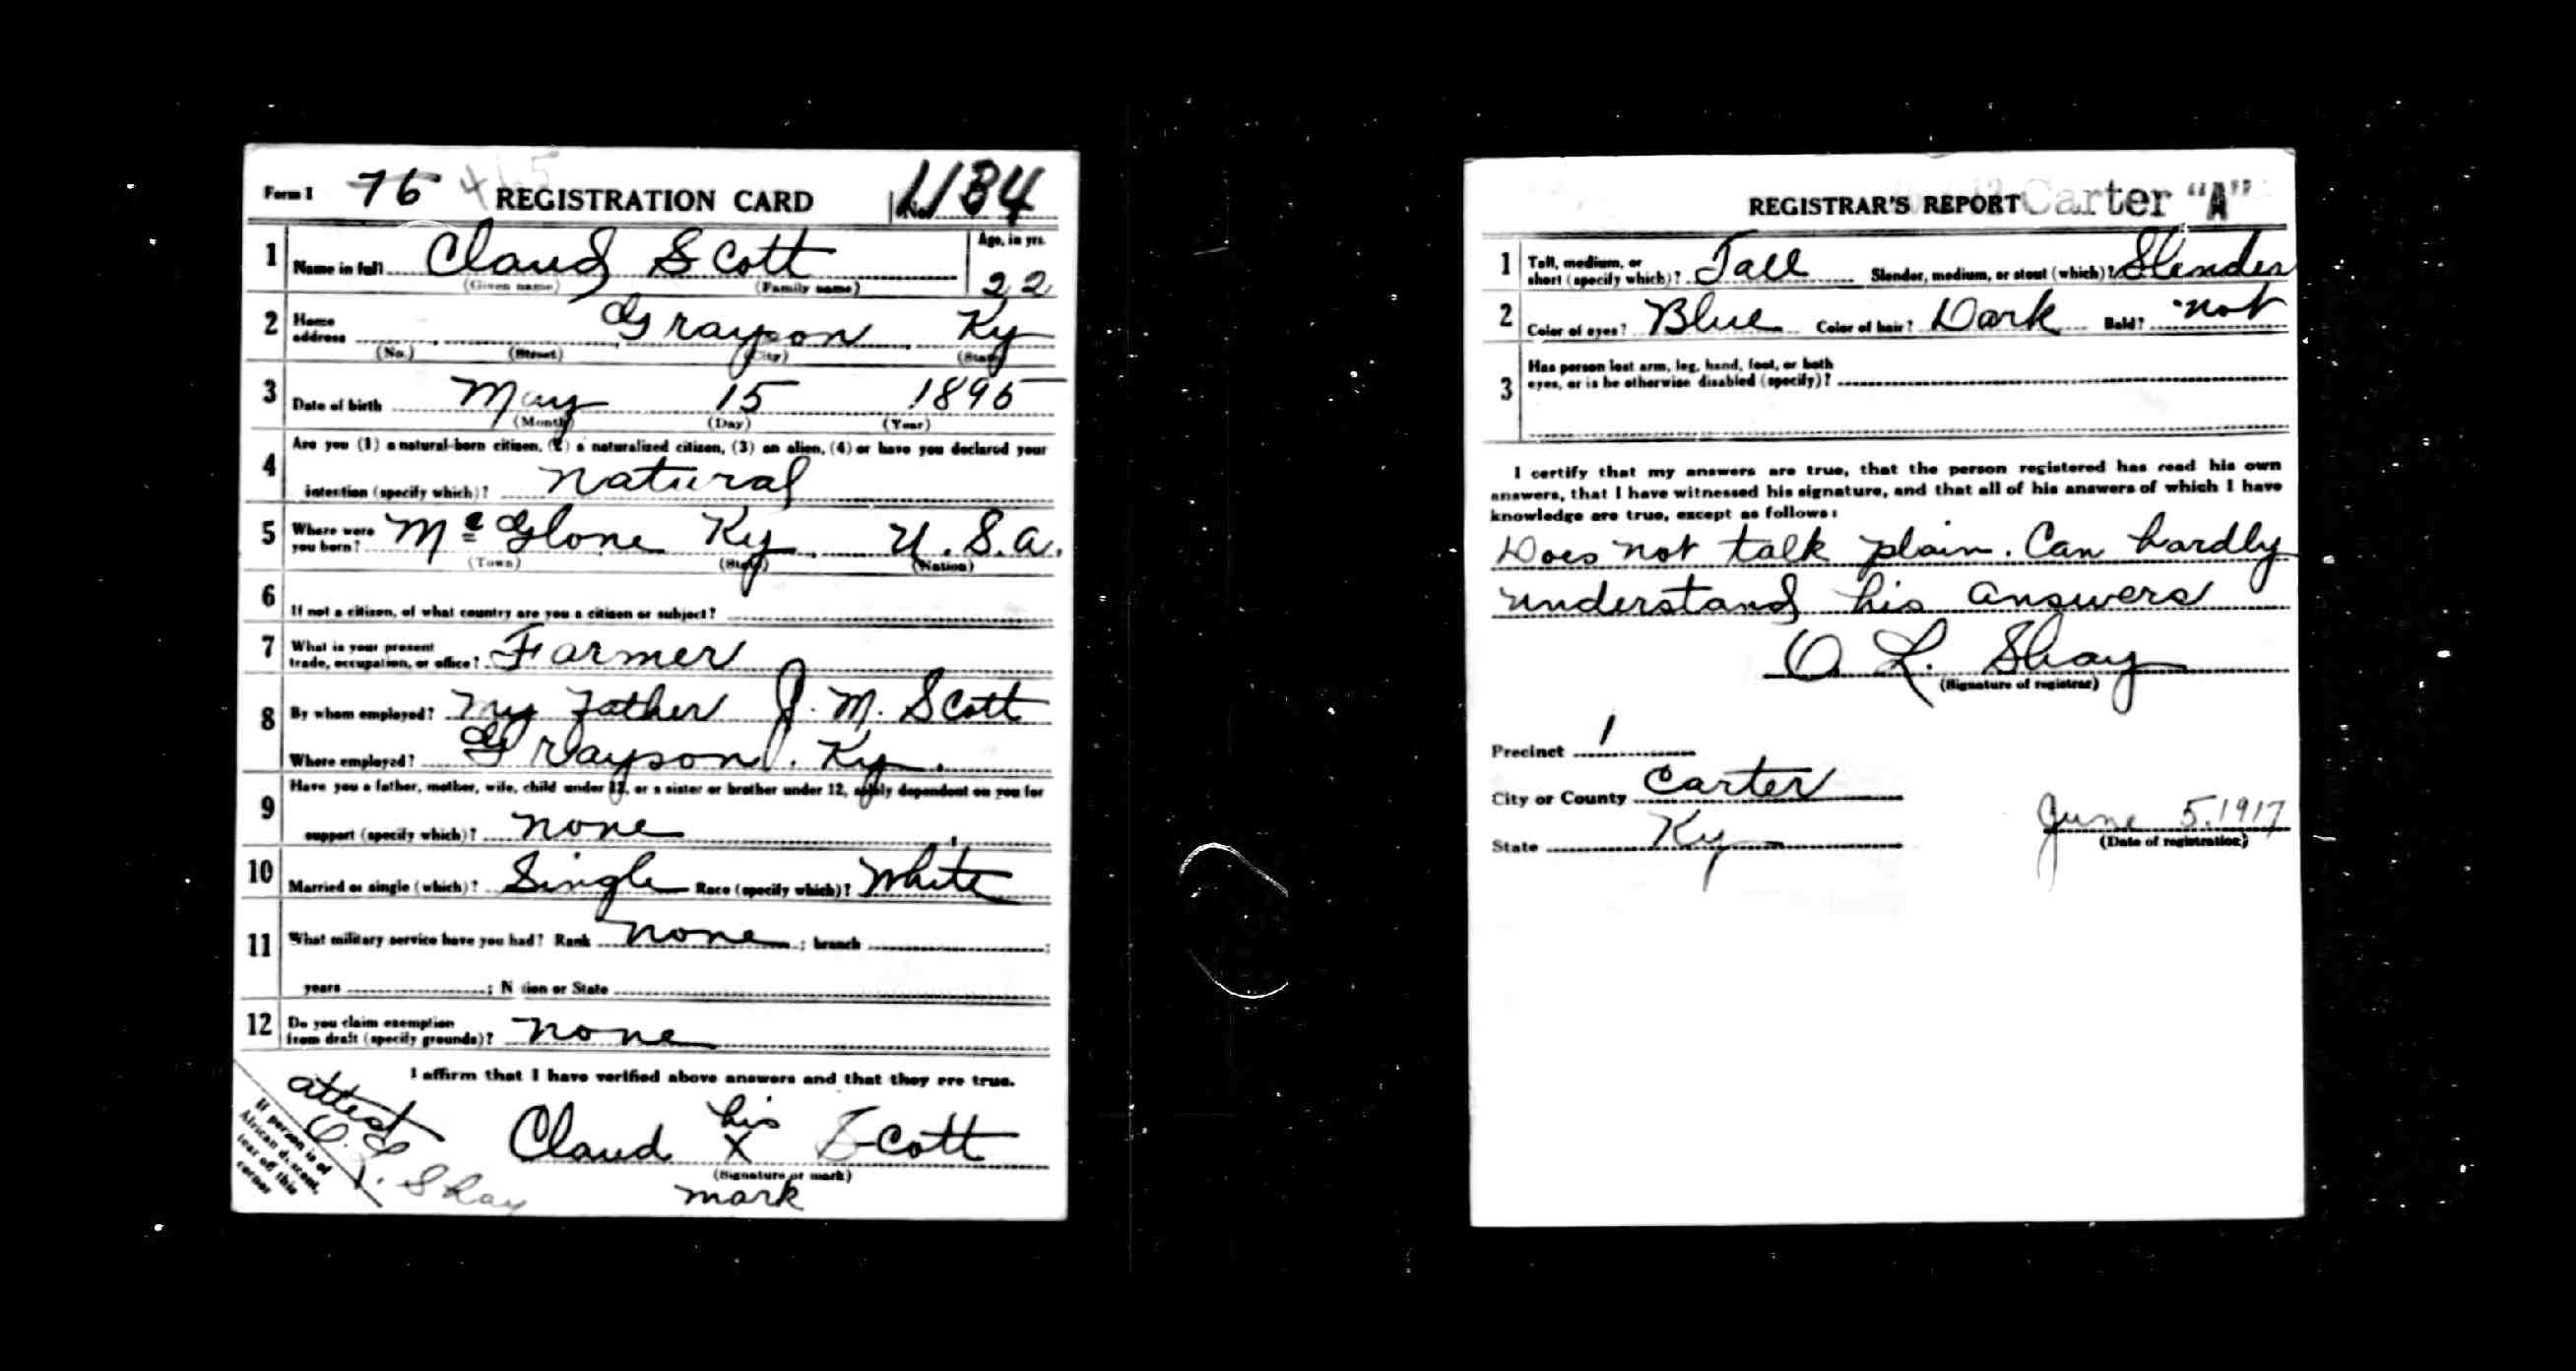 Form 1 76 REGISTRATION CARD No. 1134
1 Name in full Claud Scott Age, in yrs. 22
(Given name) (Family name)
2 Home address Grayson Ky
(No.) (Street) (City) (State)
3 Date of birth May 15 1895
(Month) (Day) (Year)
4 Are you (1) a natural-born citizen, (2) a naturalized citizen, (3) an alien, (4) or have you declared your
intention (specify which)? natural
5 Where were you born? Mc Glone Ky U.S.a.
(Town) (State) (Nation)
6 If not a citizen, of what country are you a citizen or subject?
7 What is your present trade, occupation, or office? Farmer
8 By whom employed? My Father J. M. Scott
Where employed? Grayson. Ky.
9 Have you a father, mother, wife, child under 12, or a sister or brother under 12, solely dependent on you for
support (specify which)? none
10 Married or single (which)? Single Race (specify which)? White
11 What military service have you had? Rank none ; branch ;
years ; Nation or State
12 Do you claim exemption from draft (specify grounds)? none
I affirm that I have verified above answers and that they are true.
his
Claud X Scott
(Signature or mark)
mark
attest
O. L. Shay
If person is of
African descent,
tear off this
corner
REGISTRAR'S REPORT Carter "A"
1 Tall, medium, or short (specify which)? Tall Slender, medium, or stout (which)? Slender
2 Color of eyes? Blue Color of hair? Dark Bald? not
3 Has person lost arm, leg, hand, foot, or both
eyes, or is he otherwise disabled (specify)?
I certify that my answers are true, that the person registered has read his own
answers, that I have witnessed his signature, and that all of his answers of which I have
knowledge are true, except as follows:
Does not talk plain. Can hardly
understand his answers
O. L. Shay
(Signature of registrar)
Precinct 1
City or County Carter
State Ky
June 5, 1917
(Date of registration)